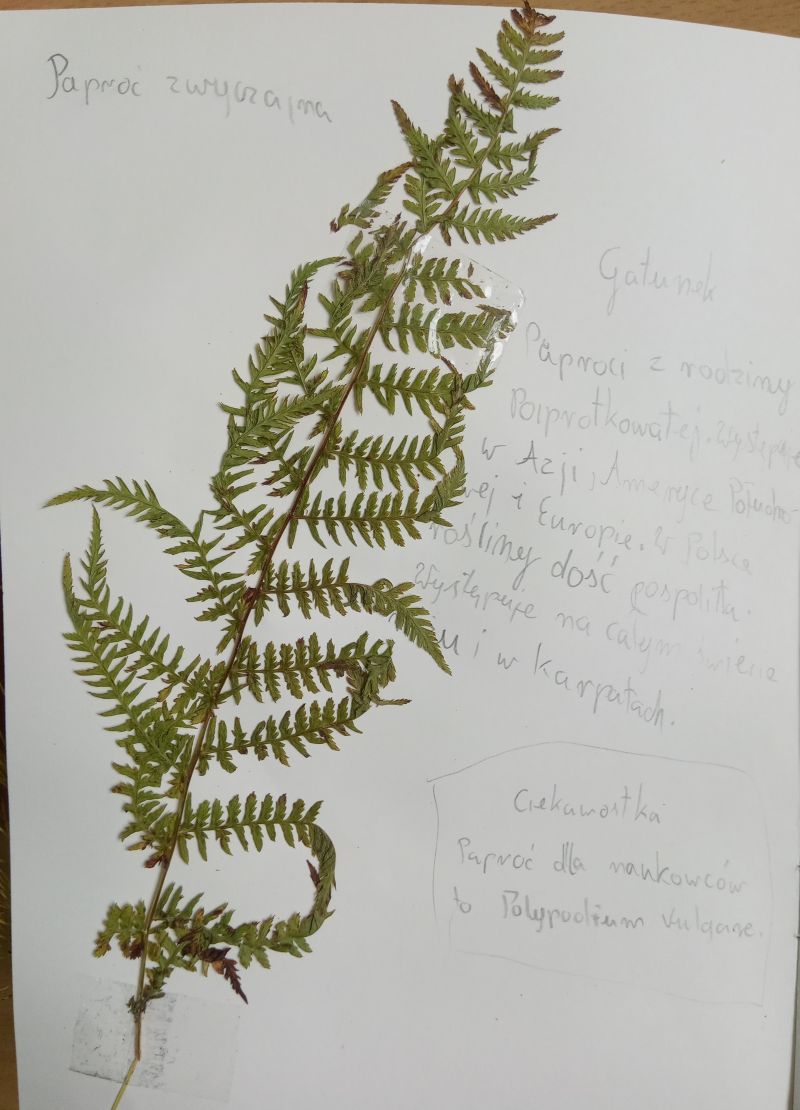 Paproć zwyczajna
Gatunek
Paproci z rodziny
Paprotkowatej. Występuje
w Azji, Ameryce Południo-
wej i Europie. W Polsce
rośliny dość pospolita.
Występuje na całym świecie
i w Karpatach.
Ciekawostka
Paproć dla naukowców
to Polypodium vulgare.